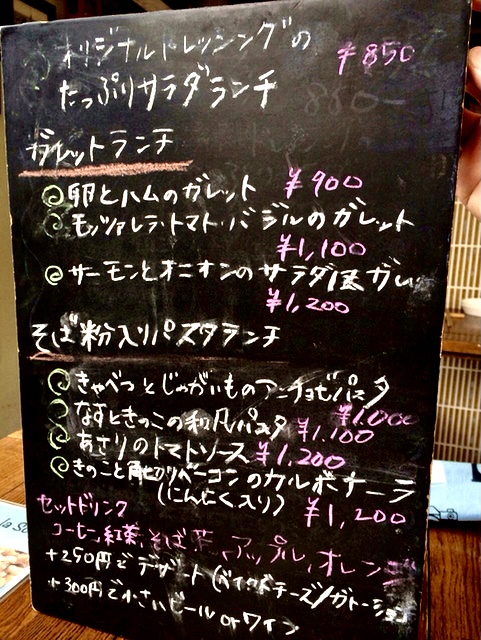 オリジナルドレッシングの
¥850
たっぷりサラダランチ
ガレットランチ
卵とハムのガレット ¥900
モッツァレラ・トマト・バジルのガレット
¥1,100
サーモンとオニオンのサラダ風ガレ
¥1,200
そば粉入りパスタランチ
きゃべつとじゃがいものアンチョビパスタ
¥1,000
なすときのこの和風パスタ ¥1,100
あさりのトマトソース ¥1,200
きのこと角切りベーコンのカルボナーラ
(にんにく入り) ¥1,200
セットドリンク
コーヒー、紅茶、そば茶、アップル、オレンジ
+250円でデザート(ベイクドチーズ/ガトーショコラ
+300円で小さいビール orワイン